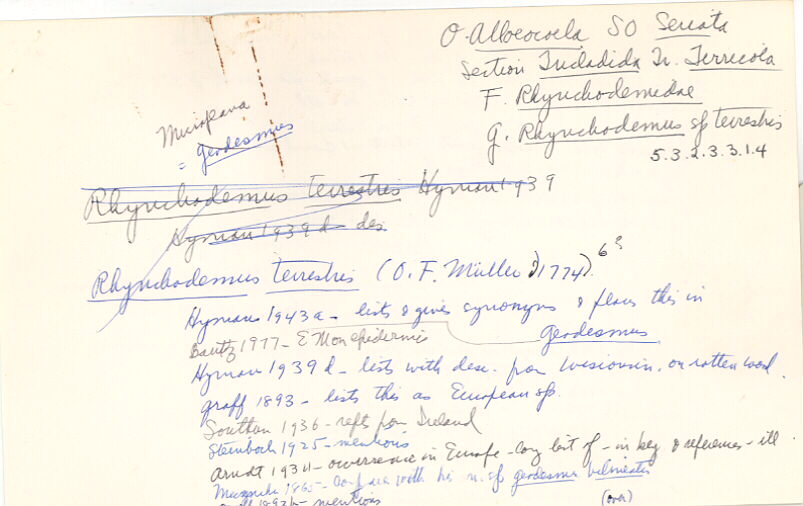 O. Alloeocoela SO Seriata
Section Tricladida Tr. Terricola
F. Rhynchodemidae
G. Rhynchodemus sp terrestris
5.3.2.3.3.1.4
Microplana
= geodesmus
Rhynchodemus terrestris Hyman 1939
Hyman 1939d des.
Rhynchodemus terrestris (O. F. Müller 1774).
Hyman 1943a - lists & gives synonyms & places this in
geodesmus
Bautz 1977 - EM on epidermis
Hyman 1939d - lists with desc. from Wisconsin, on rotten wood.
Graff 1893 - lists this as European sp.
Southern 1936 - repts from Ireland
Steinbock 1925 - mentions
Arndt 1934 - occurrence in Europe - long list of - in key & references - ill
1865 - with his n. sp geodesmus bilineatus
1892 - mentions
(over)